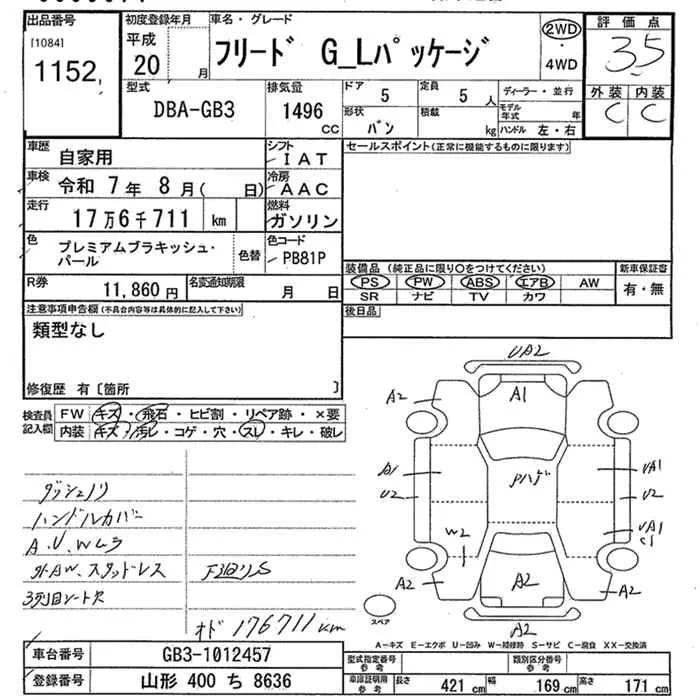 出品番号
[1084]
1152
初度登録年月
平成
20 月
車名・グレード
フリード G_Lパッケージ
2WD
・
4WD
評価点
3.5
外装 内装
C C
型式
DBA-GB3
排気量
1496
CC
ドア 5
形状 バン
定員 5 人
積載 kg
ディーラー・並行
モデル年式 年
ハンドル 左・右
車歴 自家用
シフト IAT
車検 令和 7年 8月( 日)
冷房 AAC
走行 17万6千711 km
燃料 ガソリン
色 プレミアムブラキッシュ・パール
色替
色コード PB81P
R券 11,860 円
名変通知期限 月 日
セールスポイント(正常に機能するものに限ります)
装備品 (純正品に限り○をつけてください)
新車保証書
PS PW ABS エアB AW
有・無
SR ナビ TV カワ
後日品
注意事項申告欄(不具合内容等は具体的に記入して下さい)
類型なし
修復歴 有〔箇所 〕
検査員記入欄
FW キズ・飛石・ヒビ割・リペア跡・×要
内装 キズ・汚レ・コゲ・穴・スレ・キレ・破レ
ダッシュノリ
ハンドルカバー
A、U、Wムラ
外AW、スタッドレス
下廻りS
3列目シート欠
オド 176711km
UA2
A2
A1
A1
U2
Pハゲ
UA1
U2
W2
UA1
C1
A2
A2
A2
A2
スペア
A-キズ E-エクボ U-凹み W-補修跡 S-サビ C-腐食 XX-交換済
車台番号 GB3-1012457
登録番号 山形 400 ち 8636
型式指定番号 参考
類別区分番号 参考
車庫証明用 参考
長さ 421 cm
幅 169 cm
高さ 171 cm